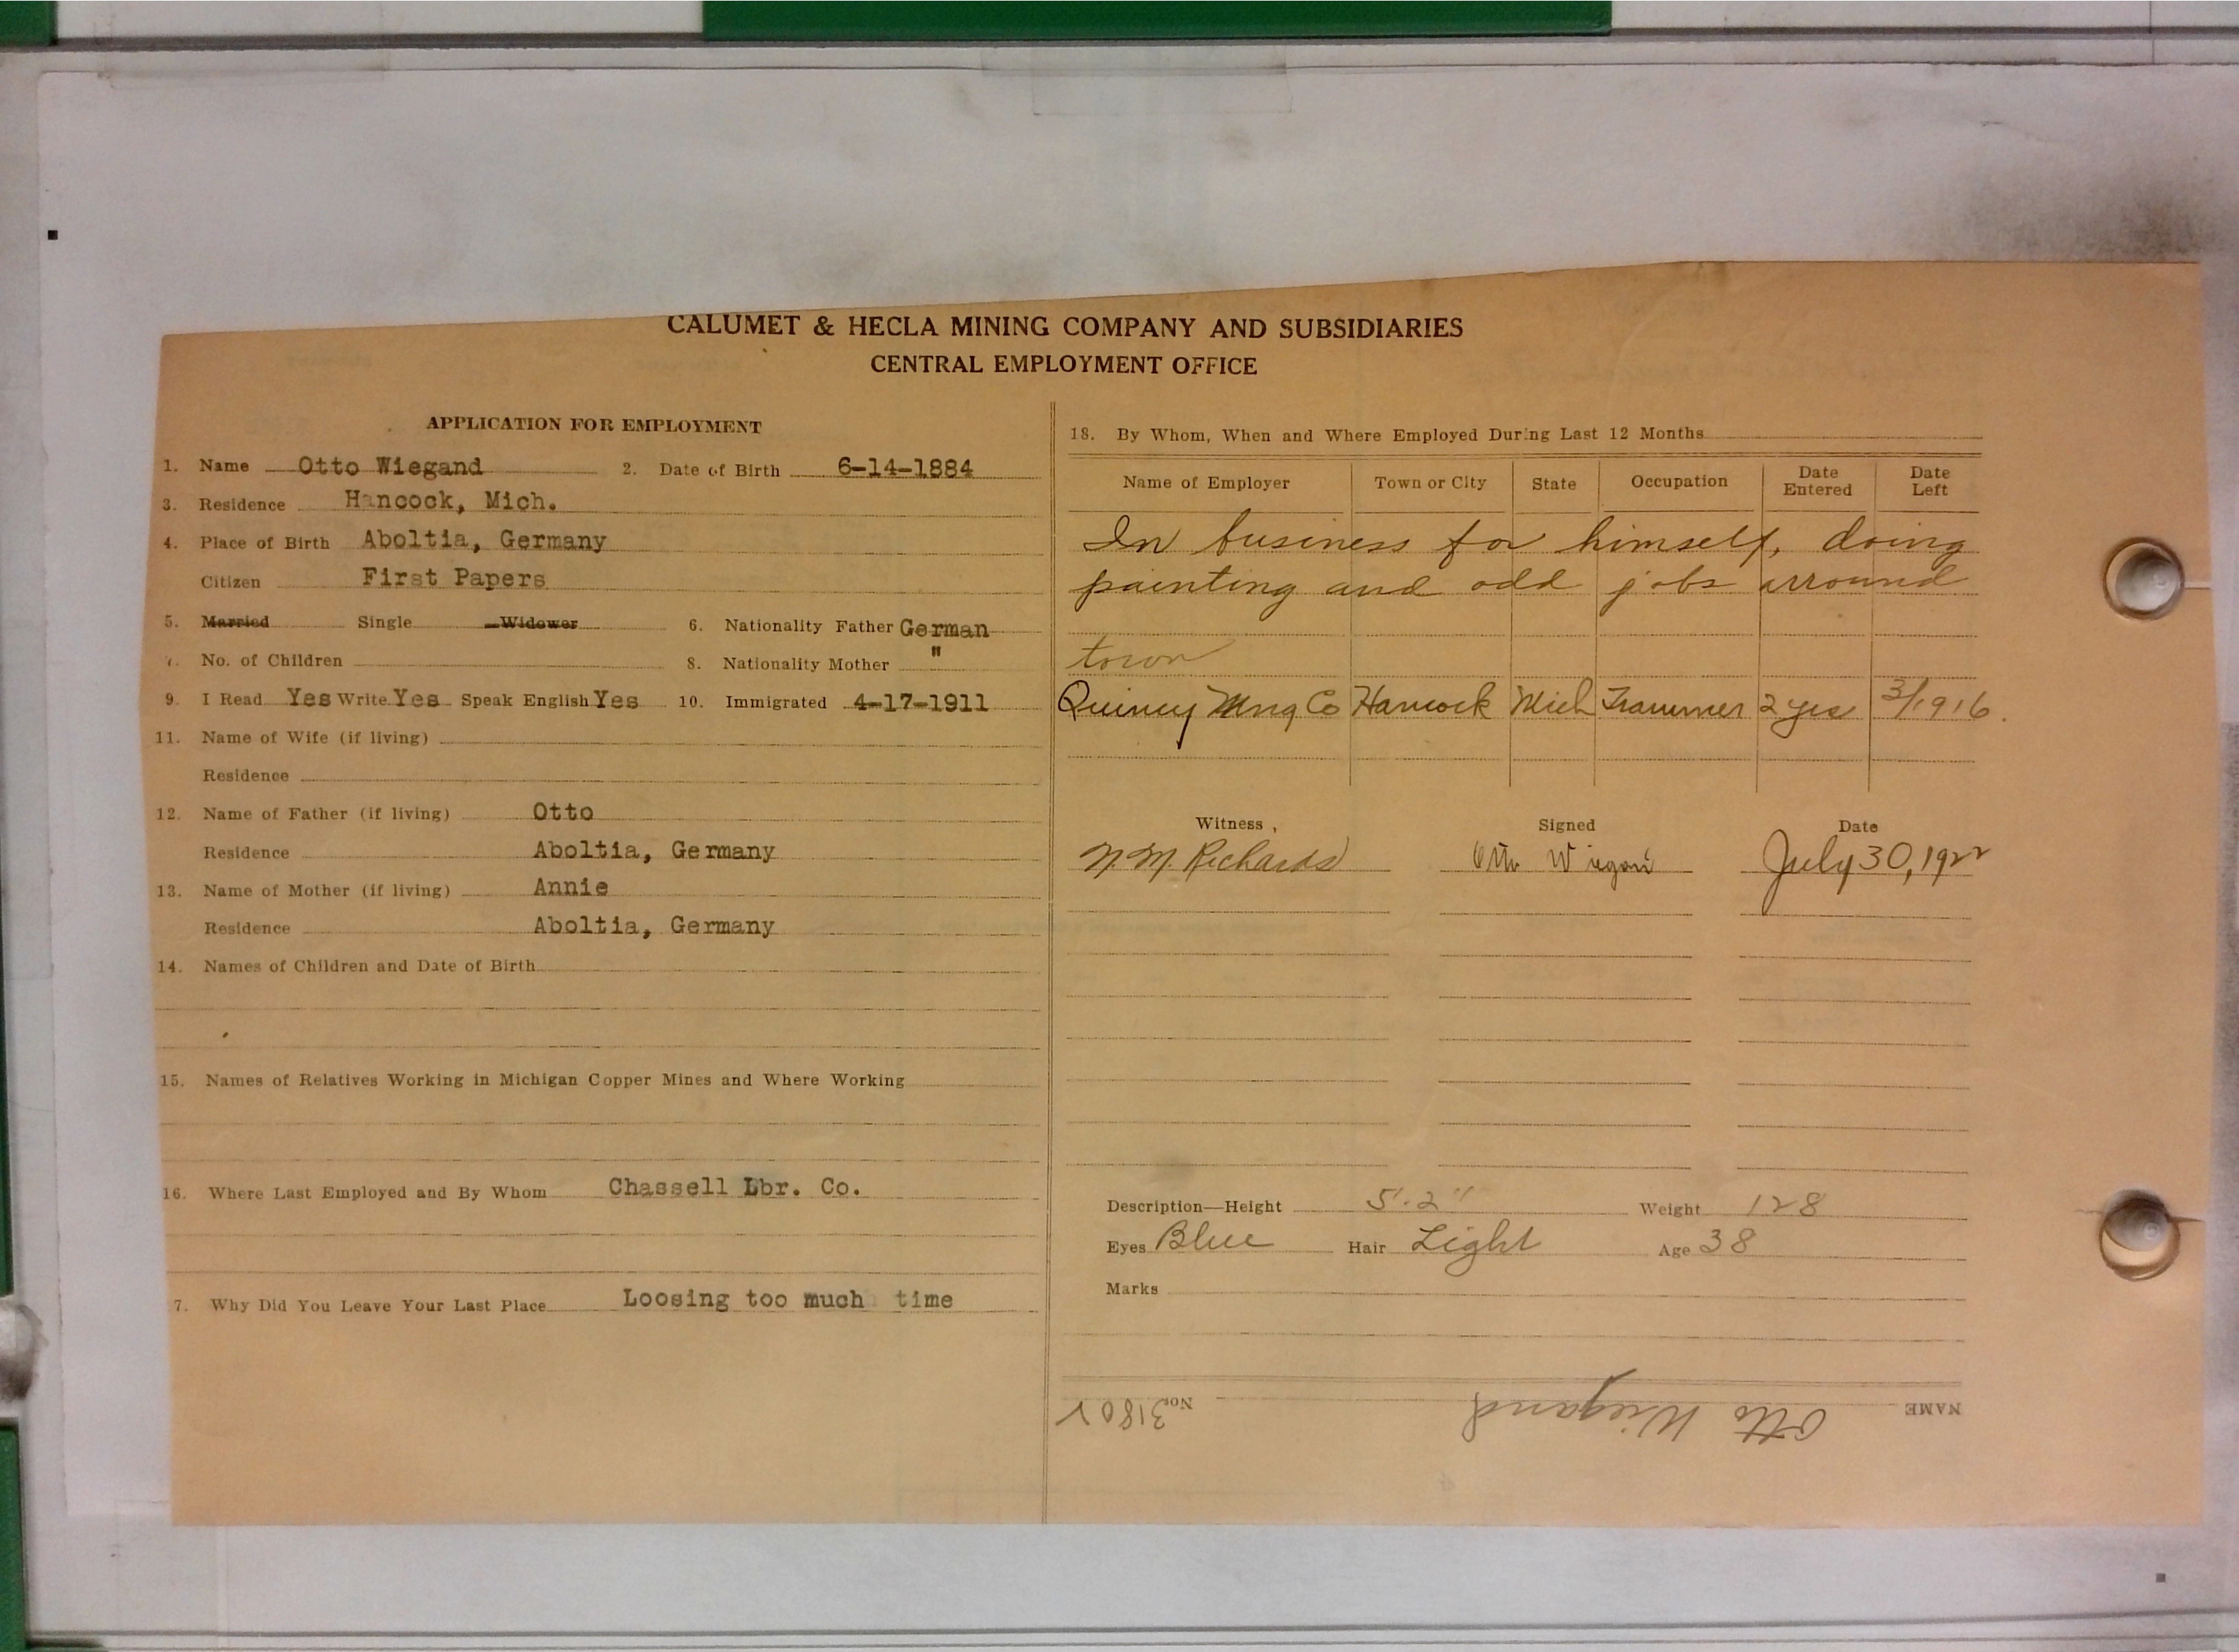 CALUMET & HECLA MINING COMPANY AND SUBSIDIARIES
CENTRAL EMPLOYMENT OFFICE
APPLICATION FOR EMPLOYMENT
1. Name Otto Wiegand 2. Date of Birth 6-14-1884
3. Residence Hancock, Mich.
4. Place of Birth Aboltia, Germany
Citizen First Papers
5. Married Single Widower 6. Nationality Father German
7. No. of Children 8. Nationality Mother "
9. I Read Yes Write Yes Speak English Yes 10. Immigrated 4-17-1911
11. Name of Wife (if living)
Residence
12. Name of Father (if living) Otto
Residence Aboltia, Germany
13. Name of Mother (if living) Annie
Residence Aboltia, Germany
14. Names of Children and Date of Birth
15. Names of Relatives Working in Michigan Copper Mines and Where Working
16. Where Last Employed and By Whom Chassell Lbr. Co.
7. Why Did You Leave Your Last Place Loosing too much time
18. By Whom, When and Where Employed During Last 12 Months
Name of Employer Town or City State Occupation Date Entered Date Left
In business for himself, doing
painting and odd jobs arround
town
Quincy Mng Co Hancock Mich Trammer 2 yrs 3/1916.
Witness Signed Date
N. M. Richards Otto Wiegand July 30, 1922
Description—Height 5'.2" Weight 128
Eyes Blue Hair Light Age 38
Marks
NAME Otto Wiegand No. 31802